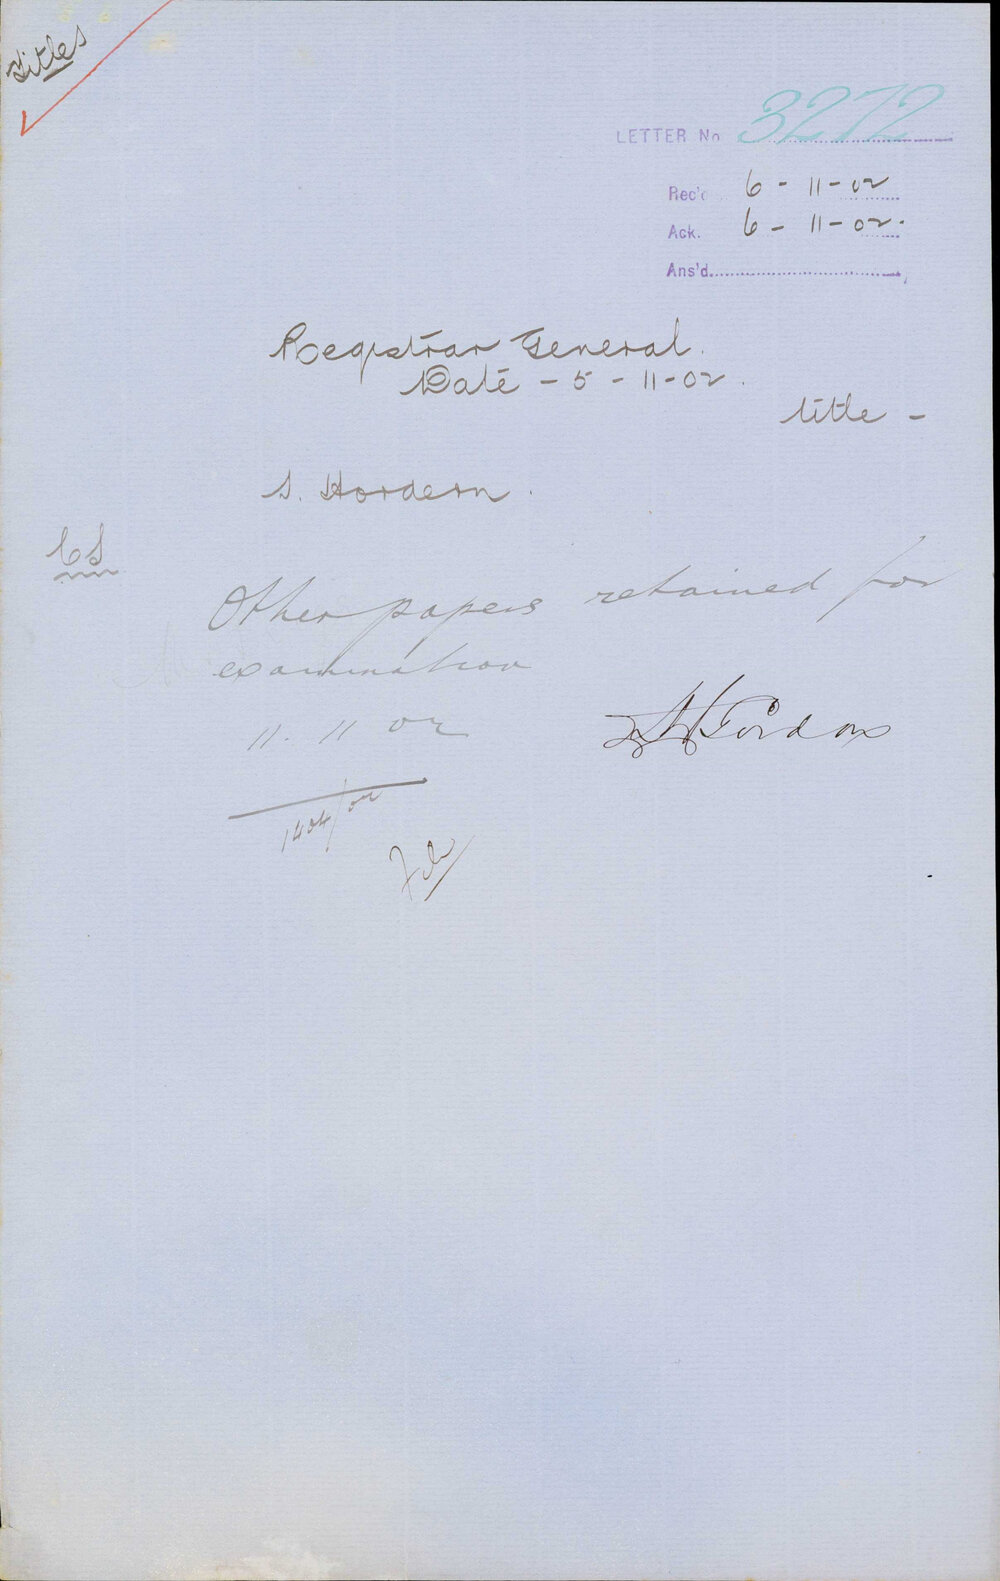 Titles
LETTER No 3272
Rec'd 6-11-02
Ack. 6-11-02.
Ans'd
Registrar General.
Date - 5-11-02.
title -
S. Hordern.
CS
Other papers retained for
examination
11.11 02
Gordon
1404/02
File